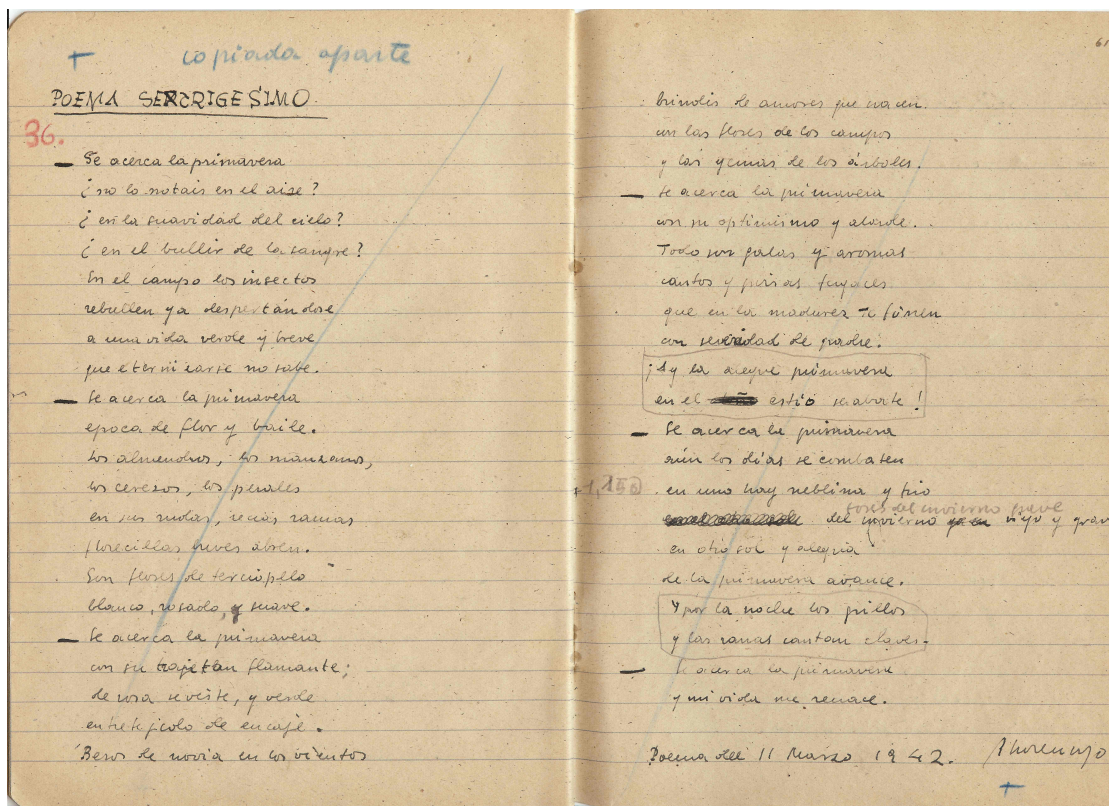 + copiada aparte
POEMA SEXRIGESIMO
36.
— Se acerca la primavera
¿no lo notais en el aire?
¿en la suavidad del cielo?
¿en el bullir de la sangre?
En el campo los insectos
rebullen ya despertándose
a una vida verde y breve
que eternizarse no sabe.
— Se acerca la primavera
epoca de flor y baile.
Los almendros, los manzanos,
los cerezos, los perales
en sus rudas, recias ramas
florecillas leves abren.
Son flores de terciopelo
blanco, rosado, y suave.
— Se acerca la primavera
con su traje tan flamante;
de rosa se viste, y verde
entretejido de encaje.
Besos de novia en los vientos
61
brindis de amores que nacen.
con las flores de los campos
y las yemas de los árboles.
— Se acerca la primavera
con su optimismo y alarde.
Todo son galas y aromas
cantos y risas fugaces
que en la madurez se funen
con seriedad de padre.
¡Ay la alegre primavera
en el estío se abate!
— Se acerca la primavera
aún los días se combaten
en uno hay neblina y frio
toses del invierno grave
del invierno viejo y grave
en otro sol y alegría
de la primavera avance.
Y por la noche los grillos
y las ranas cantan claves.
— Se acerca la primavera
y mi vida me renace.
Poema del 11 Marzo 1942.
+